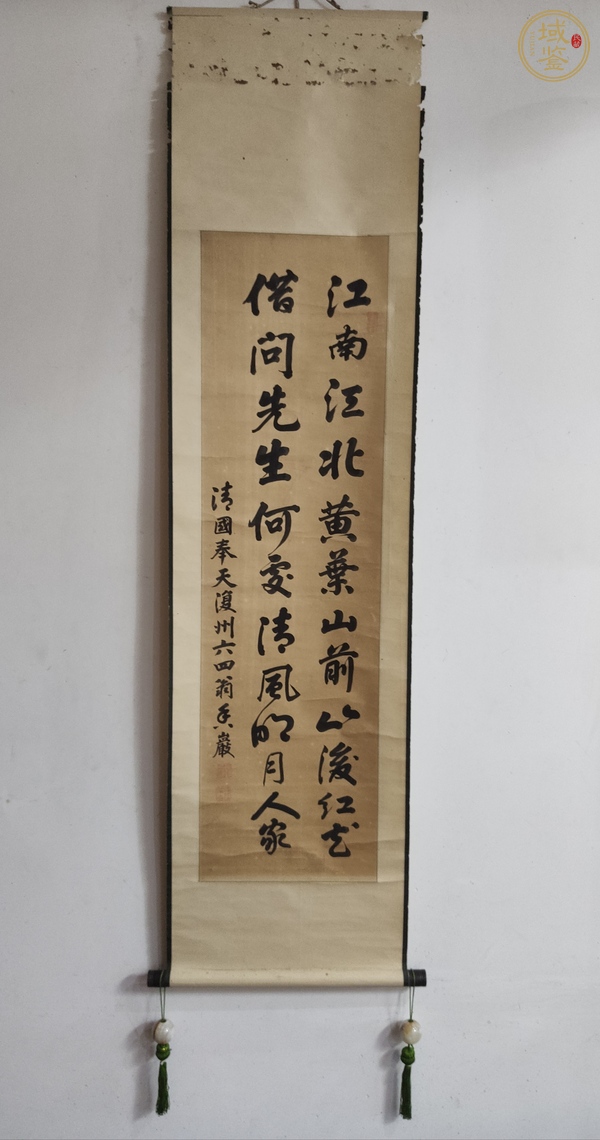 江南江北黄葉山前山後红花
借问先生何處清風明月人家
清國奉天復州六四翁香巖
域鉴